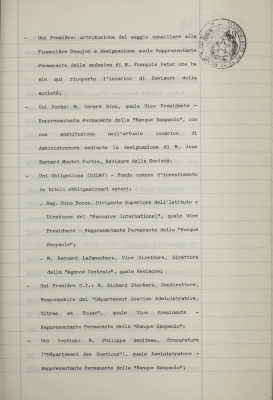 - Uni Première: attribuzione del seggio consiliare alla
Financière Beaujon e designazione quale Rappresentante
Permanente della medesima di M. François Peter che ha
sin qui ricoperto l'incarico di Revisore della
società;
- Uni Roche: M. Gerard Rieu, quale Vice Presidente -
Rappresentante Permanente della "Banque Sanpaolo", con
sua sostituzione nell'attuale incarico di
Amministratore mediante la designazione di M. Jean
Bernard Mautet Fortis, Revisore della Società;
- Uni Obligations (SICAV) - Fondo comune d'investimento
in titoli obbligazionari esteri:
. Rag. Rino Rocca, Dirigente Superiore dell'Istituto e
Direttore del "Bancaire International", quale Vice
Presidente - Rappresentante Permanente della "Banque
Sanpaolo";
. M. Bernard Lafanechere, Vice Direttore, Direttore
della "Agence Centrale", quale Revisore;
- Uni Première C.T.: M. Richard Starkers, Condirettore,
Responsabile del "Département Gestion Administrative,
Titres et Bourse", quale Vice Presidente -
Rappresentante Permanente della "Banque Sanpaolo";
- Uni Gestion: M. Philippe Geniteau, Procuratore
("Département des Gestions"), quale Amministratore -
Rappresentante Permanente della "Banque Sanpaolo";